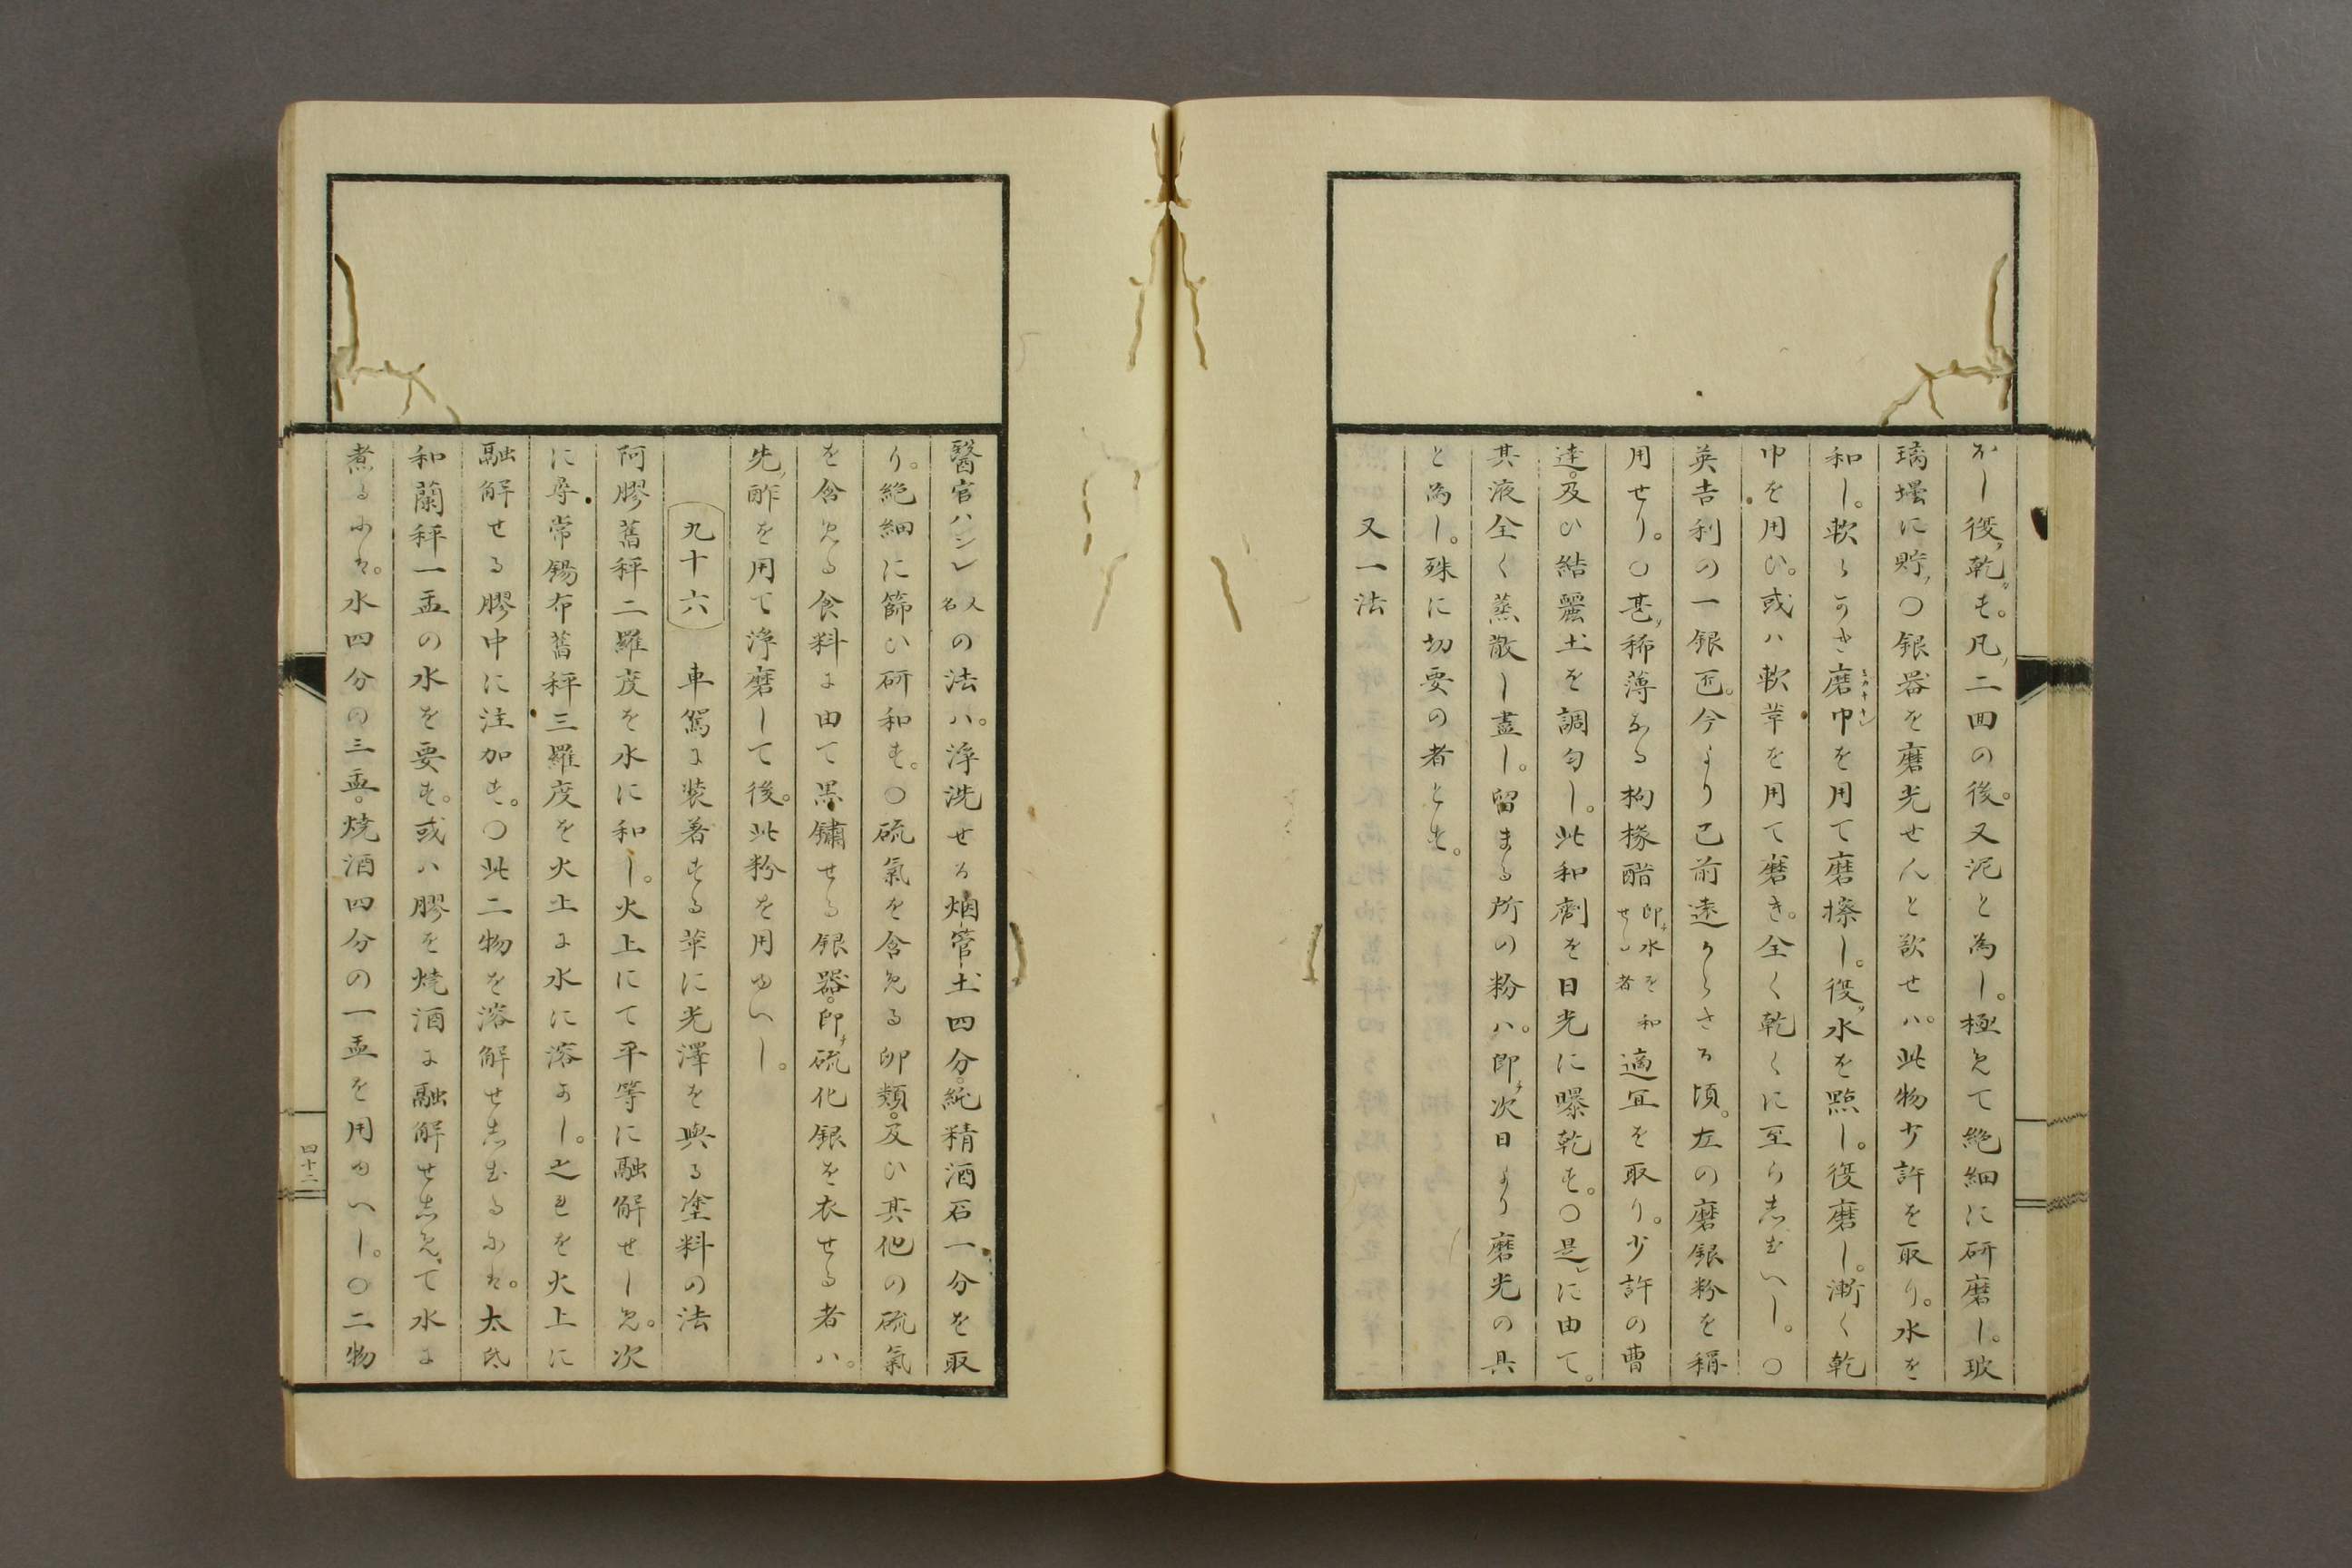 かし復乾す。凡二回の後。又泥と為し。極めて絶細に研磨し。玻
璃壜に貯ふ○銀器を磨光せんと欲せハ。此物少許を取り。水を
和し。軟らかき磨巾を用て磨擦し。復水を點し。復磨し。漸く乾
巾を用ひ。或ハ軟革を用て磨き。全く乾くに至らしむへし。○
英吉利の一銀匠。今より已前遠からさる頃。左の磨銀粉を稱
用せり。○甚稀薄なる枸櫞醋即水を和せる者適宜を取り。少許の曹
達。及ひ結麗土を調匀し。此和劑を日光に曝乾す。○是に由て。
其液全く蒸散し盡し。留まる所の粉ハ。即次日より磨光の具
と為し。殊に切要の者とす。
又一法
醫官ハシレ人名の法ハ。浄洗せる烟管土四分。純精酒石一分を取
り。絶細に篩ひ研和す。○硫氣を含める卵類。及ひ其他の硫氣
を含める食料に由て黒鏽せる銀器。即硫化銀を衣せる者ハ。
先酢を用て浄磨して後。此粉を用ゆへし。
九十六 車駕に装著する革に光澤を與る塗料の法
阿膠舊秤二羅度を水に和し。火上にて平等に融解せしめ。次
に尋常錫布舊秤三羅度を火上に水に溶かし。之れを火上に
融解せる膠中に注加す。○此二物を溶解せしむるにハ。太氐
和蘭秤一盂の水を要す。或ハ膠を焼酒に融解せしめて水に
煮るにハ。水四分の三盂。焼酒四分の一盂を用ゆへし。○二物
四十二